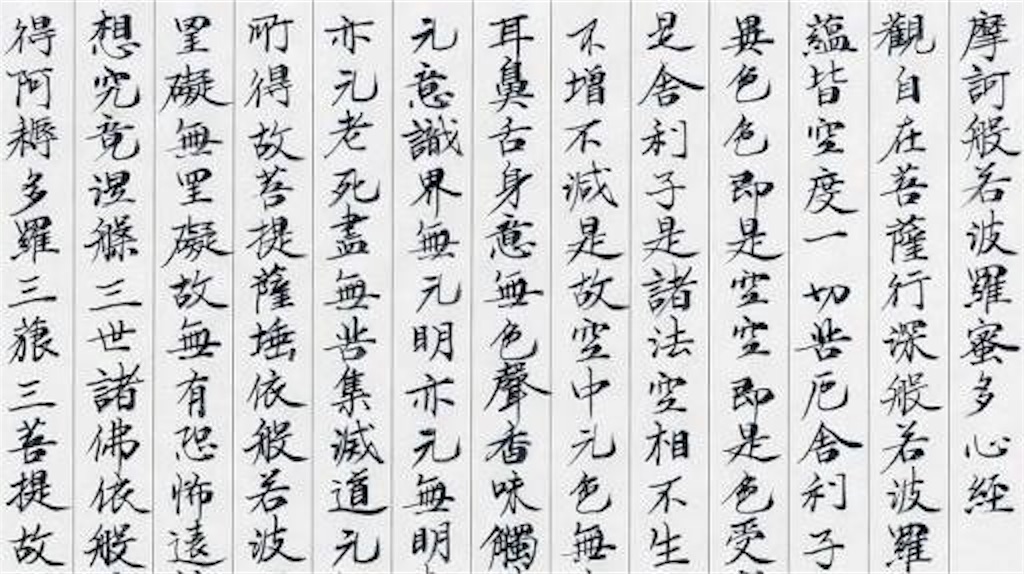 摩訶般若波羅蜜多心経
觀自在菩薩行深般若波羅
蘊皆空度一切苦厄舍利子
異色色即是空空即是色受
是舍利子是諸法空相不生
不增不減是故空中元色無
耳鼻舌身意無色聲香味觸
元意識界無元明亦元無明
亦元老死盡無苦集滅道元
所得故菩提薩埵依般若波
罣礙無罣礙故無有恐怖遠
想究竟涅槃三世諸佛依般
得阿耨多羅三藐三菩提故